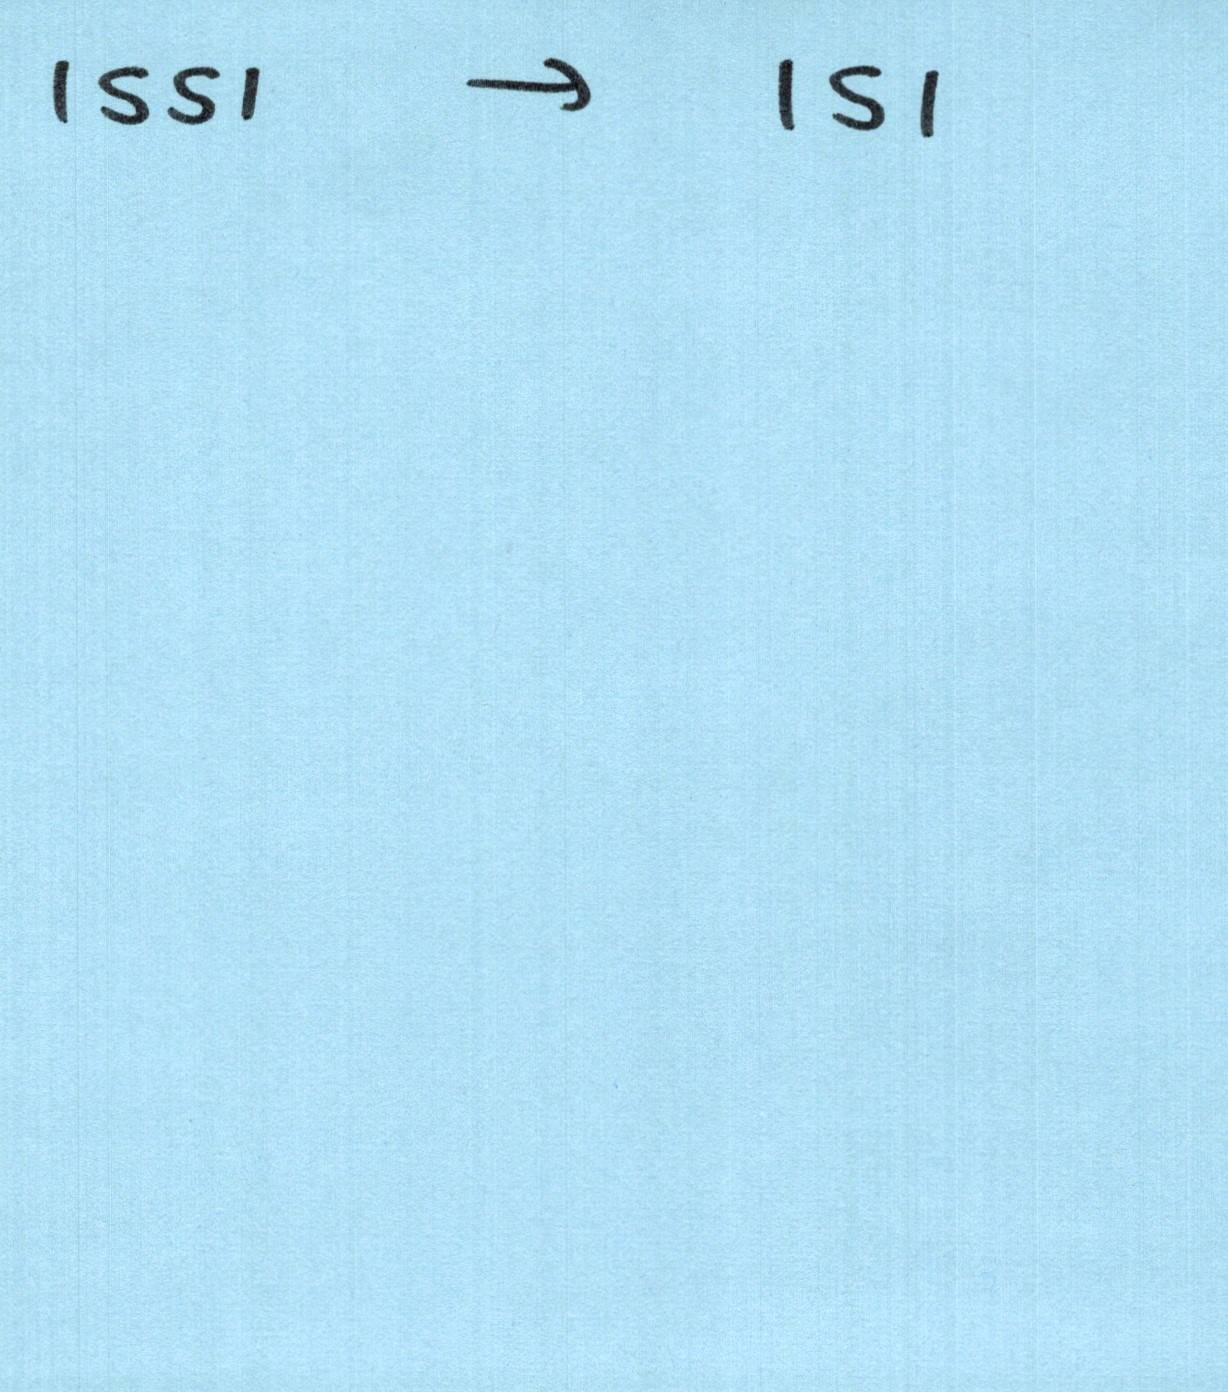 ISSI → ISI